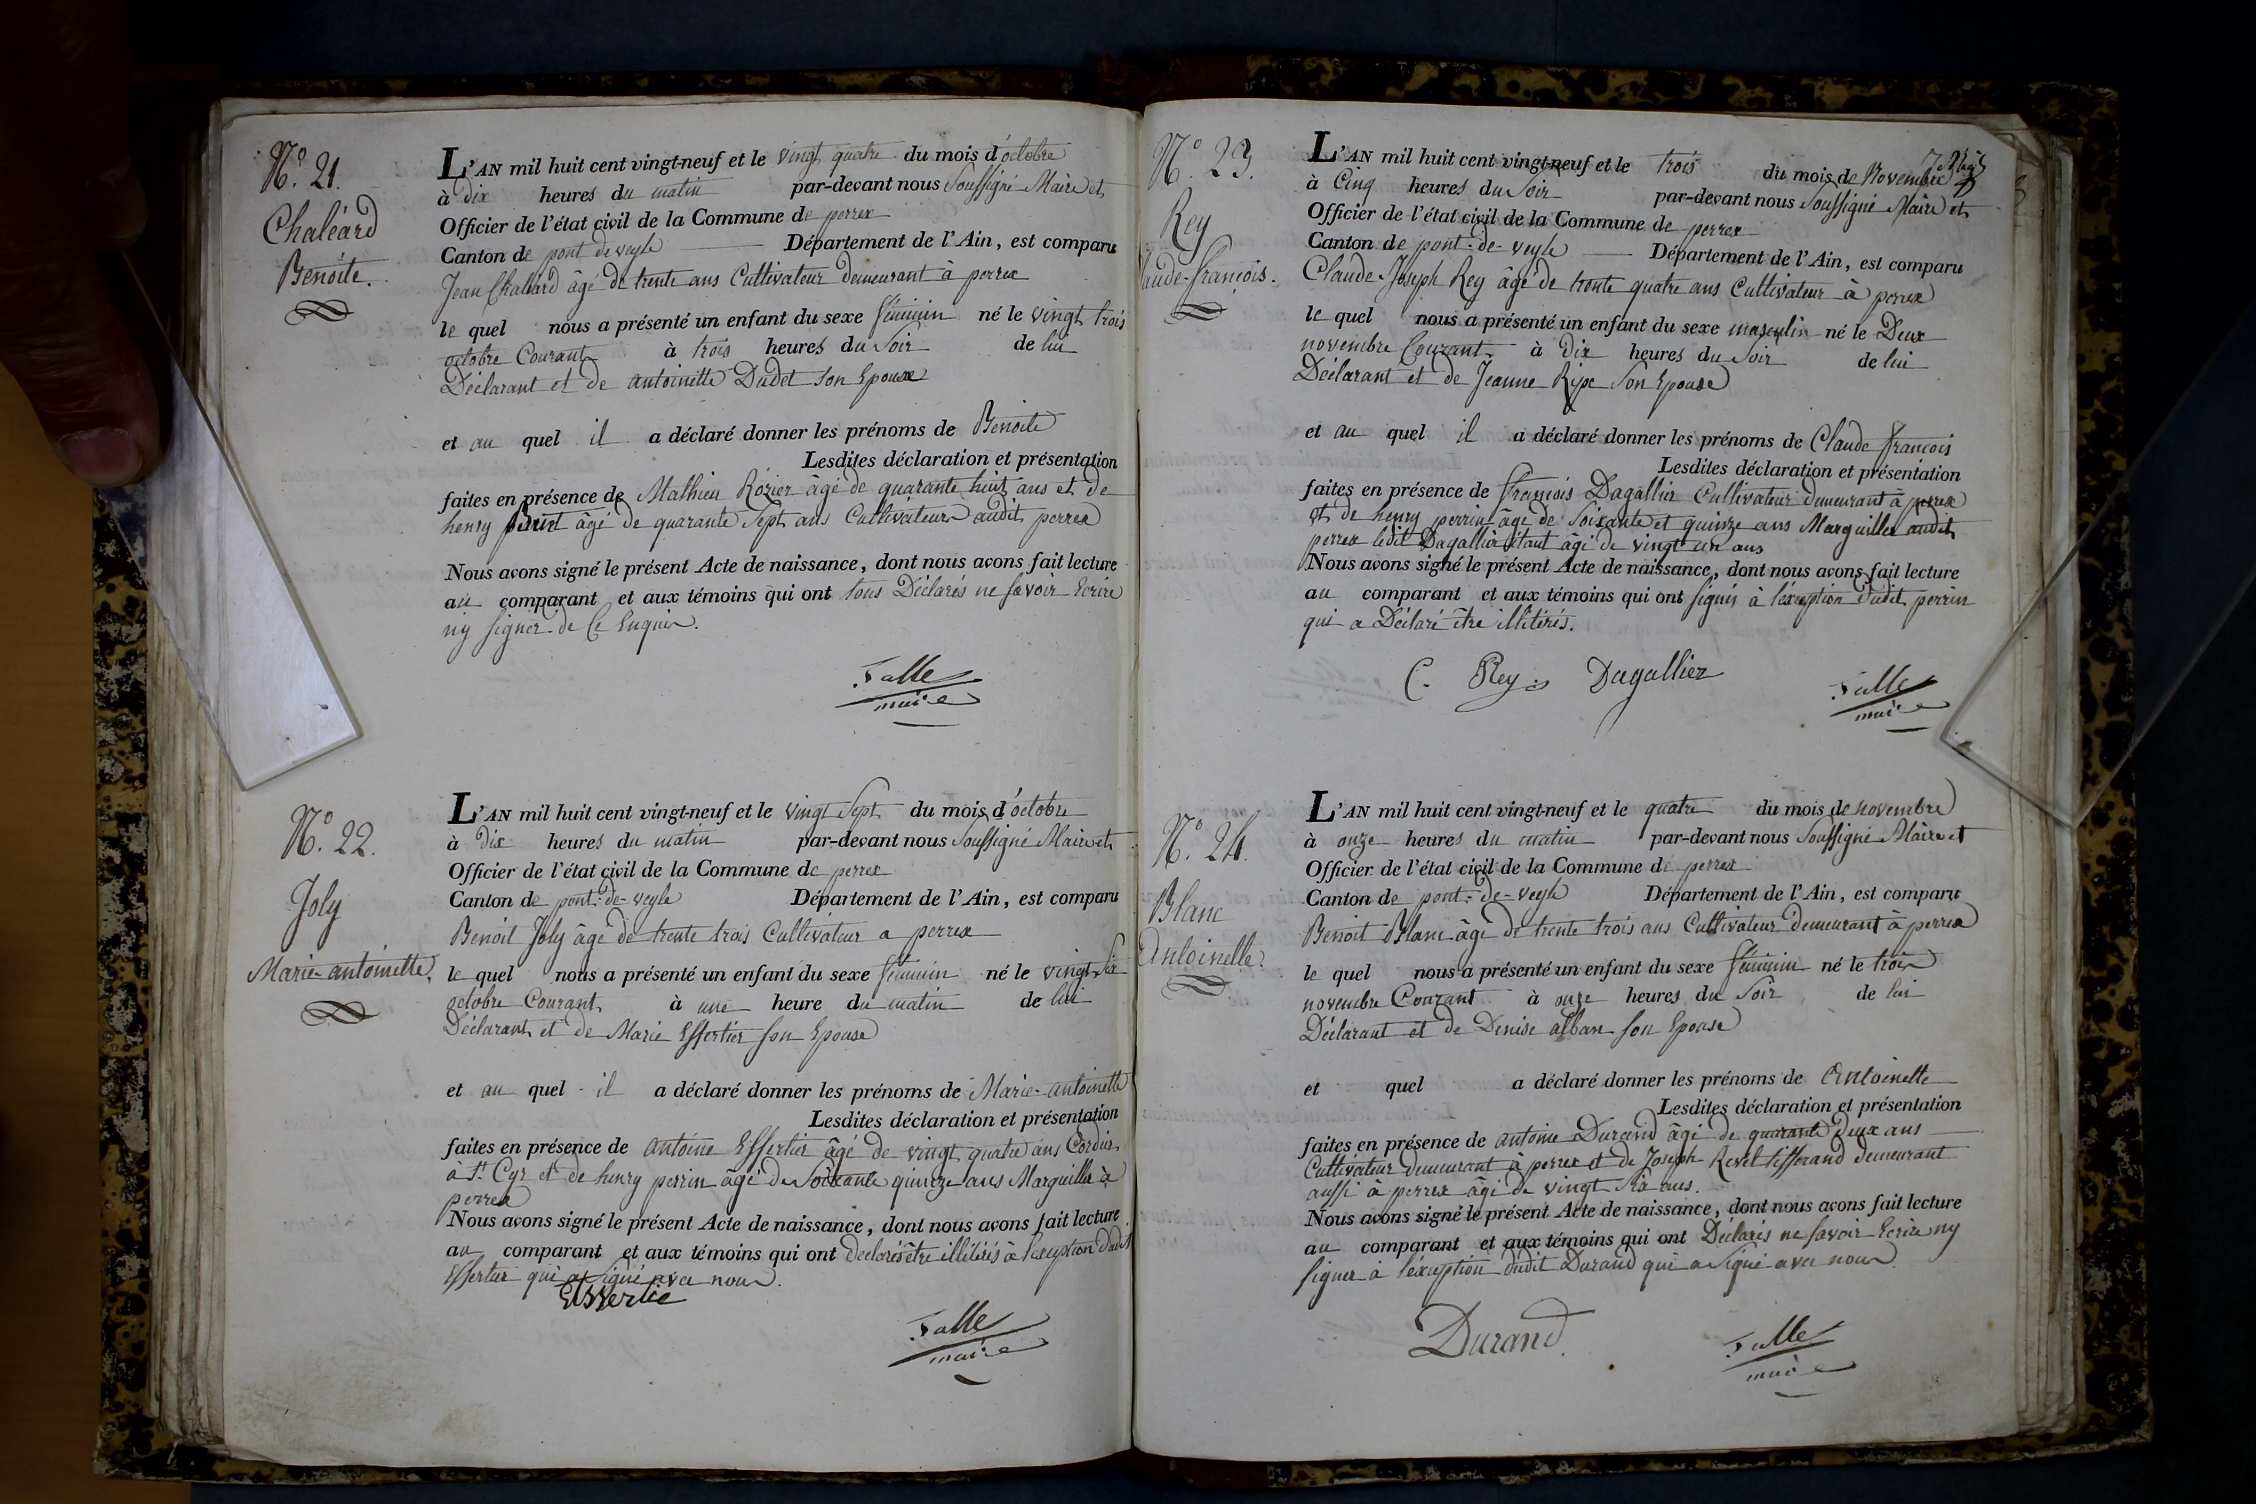 N.° 21.
Chaléard
Benoite.
L'AN mil huit cent vingt-neuf et le vingt quatre du mois d'octobre
à dix heures du matin par-devant nous Soussigné Maire et
Officier de l'état civil de la Commune de perrex
Canton de pont de veyle Département de l'Ain, est comparu
Jean Chaléard âgé de trente ans Cultivateur demeurant à perrex
le quel nous a présenté un enfant du sexe féminin né le vingt trois
octobre Courant à trois heures du Soir de lui
Déclarant et de antoinette Dudet son Epouse
et au quel il a déclaré donner les prénoms de Benoite
Lesdites déclaration et présentation
faites en présence de Mathieu Rozier âgé de quarante huit ans et de
henry âgé de quarante Sept ans Cultivateurs audit perrex
Nous avons signé le présent Acte de naissance, dont nous avons fait lecture
au comparant et aux témoins qui ont tous Déclarés ne savoir Ecrire
ny signer de Ce Enquis.
Falle
maire
N.° 22.
Joly
Marie-antoinette.
L'AN mil huit cent vingt-neuf et le vingt Sept du mois d'octobre
à dix heures du matin par-devant nous Soussigné Maire et
Officier de l'état civil de la Commune de perrex
Canton de pont-de-veyle Département de l'Ain, est comparu
Benoit Joly âgé de trente trois Cultivateur a perrex
le quel nous a présenté un enfant du sexe féminin né le vingt Six
octobre Courant à une heure du matin de lui
Déclarant et de Marie Effertier son Epouse
et au quel il a déclaré donner les prénoms de Marie-antoinette
Lesdites déclaration et présentation
faites en présence de antoine Effertier âgé de vingt quatre ans Cordier
à St. Cyr et de henry perrin âgé de Soixante quinze ans Marguiller à
perrex
Nous avons signé le présent Acte de naissance, dont nous avons fait lecture
au comparant et aux témoins qui ont déclarés être illitérés à l'exception dudit
Effertier qui a Signé avec nous.
Falle
maire
N.° 23.
Rey
laude-françois.
L'AN mil huit cent vingt-neuf et le trois du mois de Novembre
à Cinq heures du Soir par-devant nous Soussigné Maire et
Officier de l'état civil de la Commune de perrex
Canton de pont-de-veyle Département de l'Ain, est comparu
Claude-Joseph Rey âgé de trente quatre ans Cultivateur à perrex
le quel nous a présenté un enfant du sexe masculin né le Deux
novembre Courant à dix heures du Soir de lui
Déclarant et de Jeanne Ripe Son Epouse
et au quel il a déclaré donner les prénoms de Claude françois
Lesdites déclaration et présentation
faites en présence de françois Dagallier Cultivateur demeurant à perrex
et de henry perrin âgé de Soixante et quinze ans Marguiller audit
perrex ledit Dagallier étant âgé de vingt un ans
Nous avons signé le présent Acte de naissance, dont nous avons fait lecture
au comparant et aux témoins qui ont signés à l'exception dudit perrin
qui a Déclaré être illitérés.
C. Rey Dagallier
Falle
maire
N.° 24.
Blanc
Antoinette.
L'AN mil huit cent vingt-neuf et le quatre du mois de novembre
à onze heures du matin par-devant nous Soussigné Maire et
Officier de l'état civil de la Commune de perrex
Canton de pont-de-veyle Département de l'Ain, est comparu
Benoit Blanc âgé de trente trois ans Cultivateur demeurant à perrex
le quel nous a présenté un enfant du sexe féminin né le trois
novembre Courant à onze heures du Soir de lui
Déclarant et de Denise alban son Epouse
et quel a déclaré donner les prénoms de Antoinette
Lesdites déclaration et présentation
faites en présence de antoine Durand âgé de quarante deux ans
Cultivateur demeurant à perrex et de Joseph Revel tisserand demeurant
aussi à perrex âgé de vingt Six ans.
Nous avons signé le présent Acte de naissance, dont nous avons fait lecture
au comparant et aux témoins qui ont Déclarés ne savoir Ecrire ny
signer à l'exception dudit Durand qui a Signé avec nous.
Durand.
Falle
maire